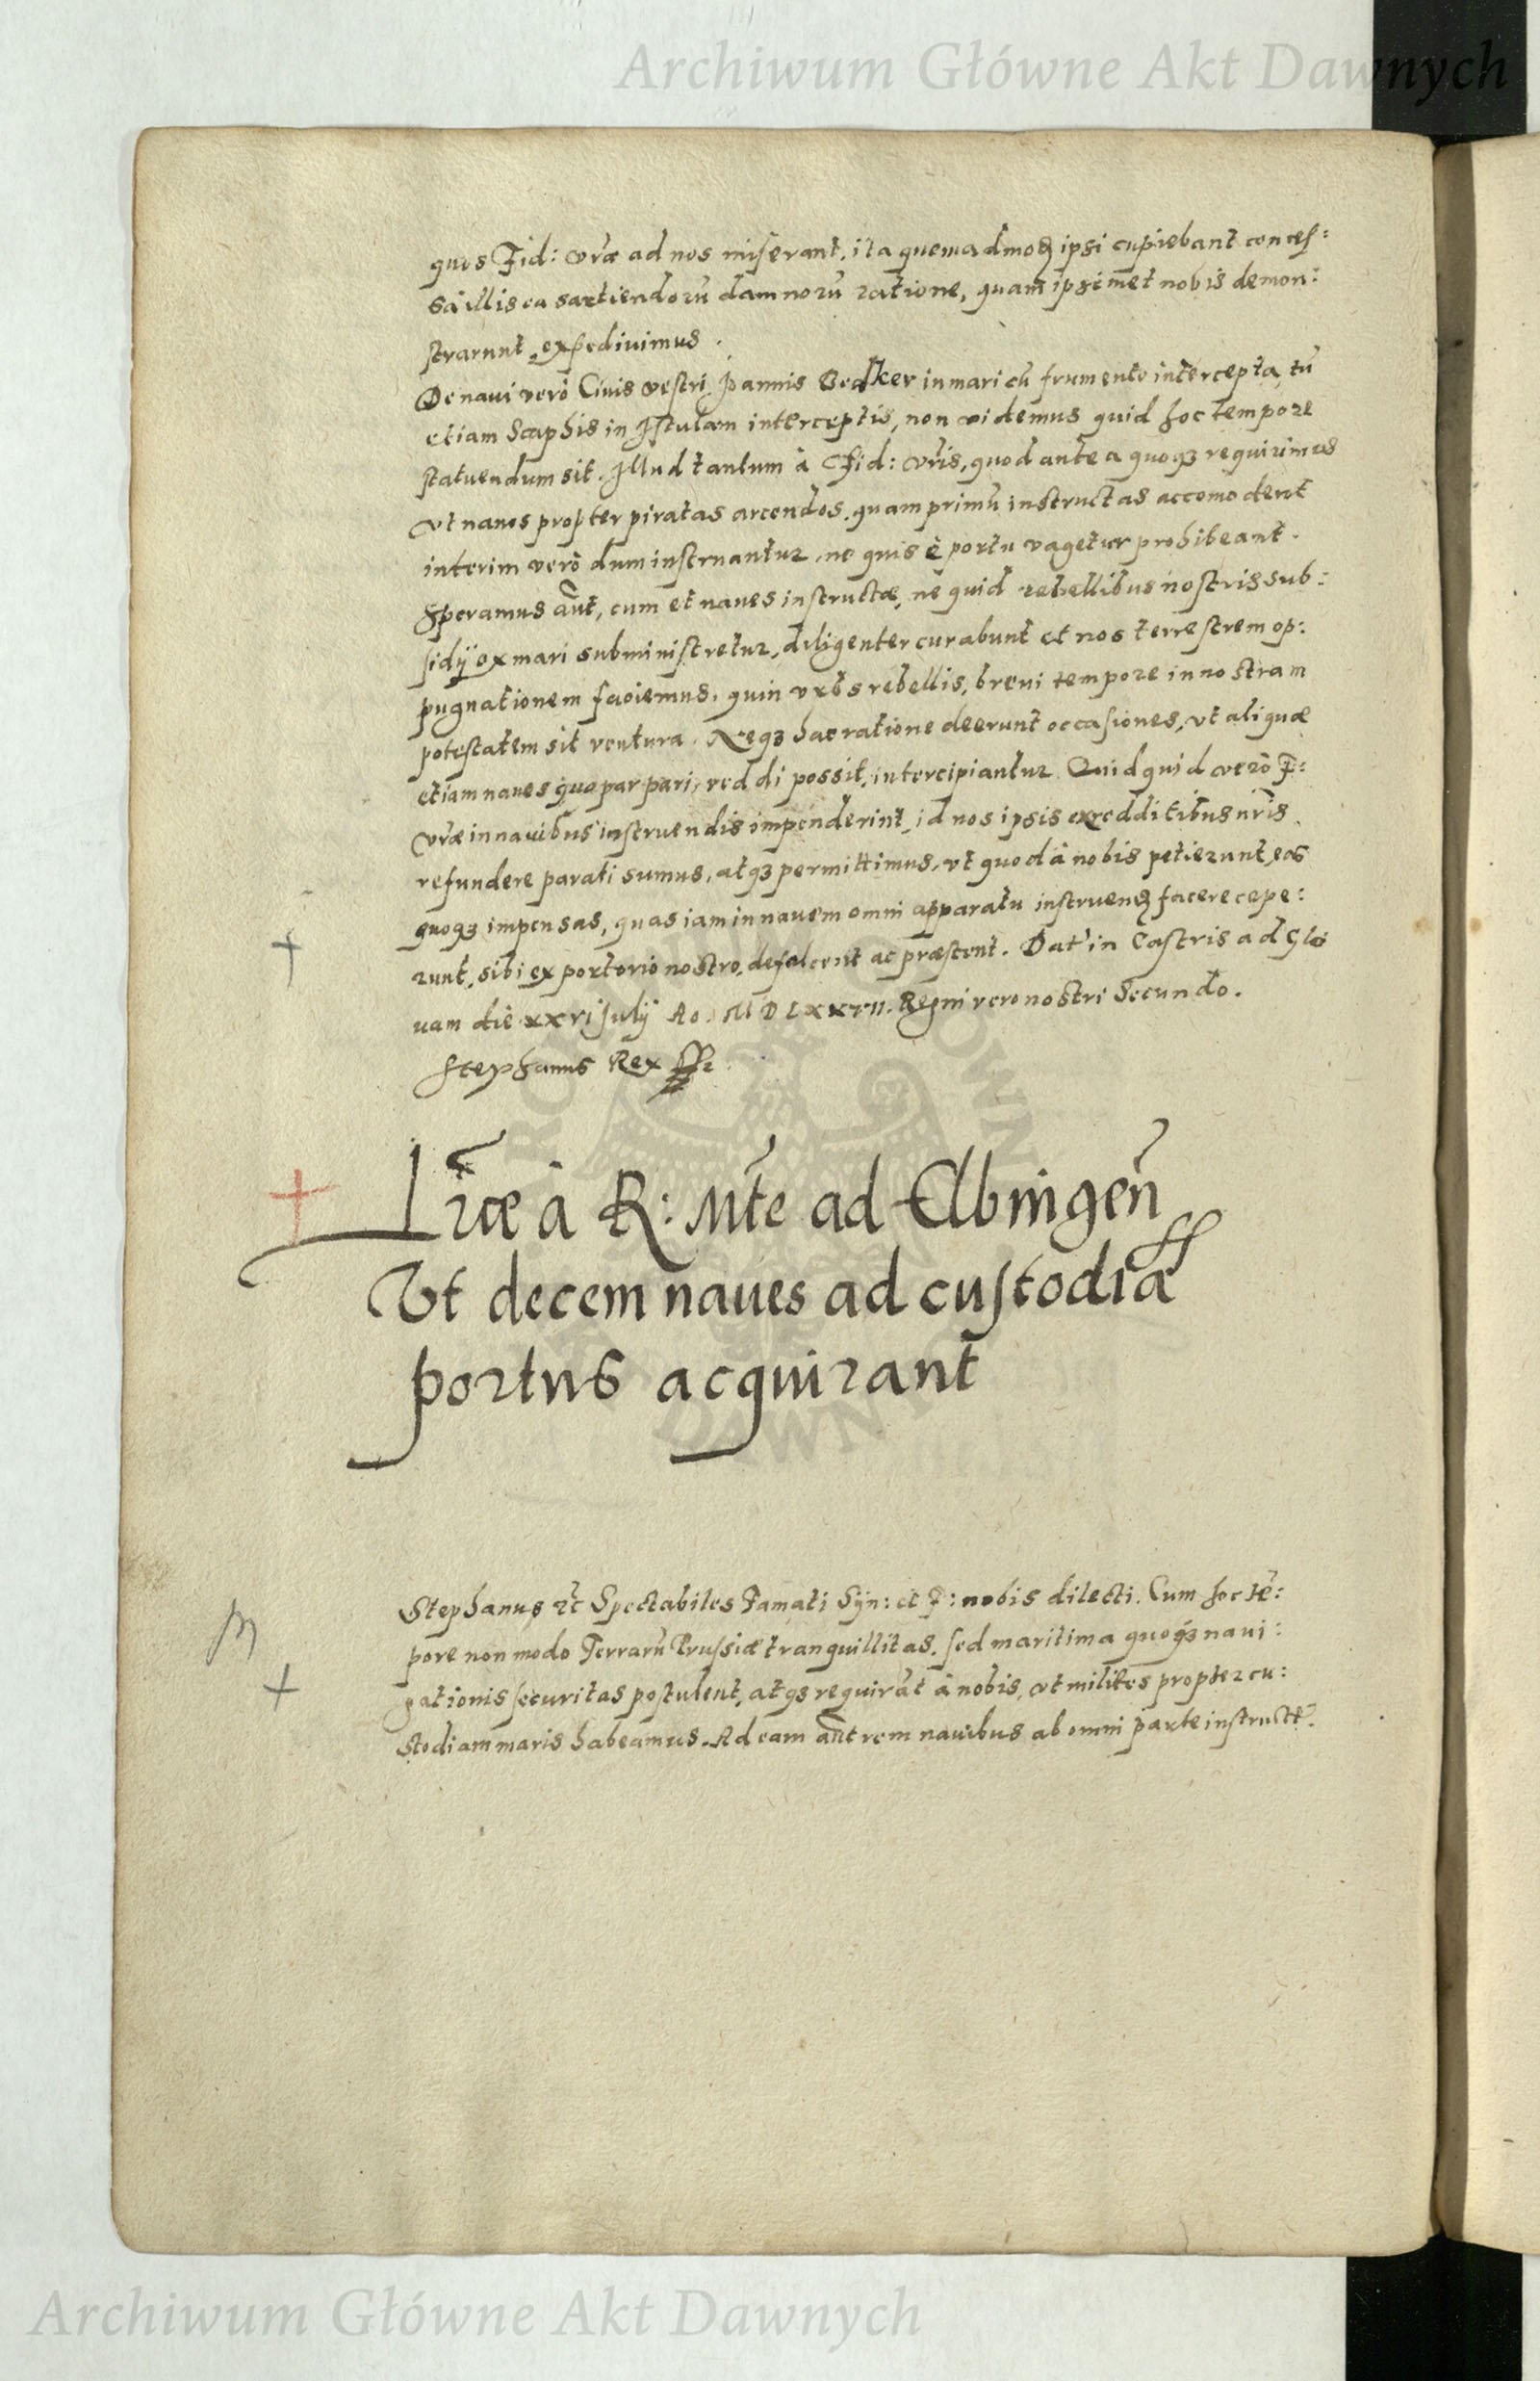 Archiwum Główne Akt Dawnych
quos Fid: vr̃æ ad nos miserant, ita quemadmodũ ipsi cupiebant conces:
sa illis ea sartiendorũ damnorũ ratione, quam ipsimet nobis demon:
strarunt expedivimus.
De navi verò Civis vestri Joannis in mari cũ frumento intercepta, tũ
etiam Scaphis in Istulam interceptis, non videmus quid hoc tempore
statuendum sit. Illud tantum à Fid: vr̃is, quod antea quoqꝫ requirimus
vt naves propter piratas arcendos quam primũ instructas accomodent
interim verò dum instruantur, ne quis è portu vagetur prohibeant.
Speramus aũt, cum et naves instructæ, ne quid rebellibus nostris sub:
sidij ex mari subministretur, diligenter curabunt et nos terrestrem op:
pugnationem faciemus, quin vrbs rebellis, brevi tempore in nostram
potestatem sit ventura. Neqꝫ hac ratione deerunt occasiones, vt aliquæ
etiam naves quo par pari reddi possit, intercipiantur. Quidquid verò F:
vr̃æ in navibus instruendis impenderint, id nos ipsis ex redditibus nr̃is
refundere parati sumus, atqꝫ permittimus, vt quod à nobis petierunt, eas
quoqꝫ impensas, quas iam in navem omni apparatu instruendã facere cepe:
runt, sibi ex portorio nostro defalcent ac præstent. Dat' in Castris ad Glo
uam die xxvi Julij Ao. MDLXXVII. Regni vero nostri Secundo.
Stephanus Rex
Lr̃æ à R: Mt̃e ad Elbingeñ
Vt decem naues ad custodiã
portus acquirant
Stephanus ꝛc Spectabiles Famati Syn: et F: nobis dilecti. Cum hoc tẽ:
pore non modo Terrarũ Prussiæ tranquillitas, sed maritima quoqꝫ navi:
gationis securitas postulent, atqꝫ requirãt à nobis, vt milites propter cu:
stodiam maris habeamus. Ad eam aũt rem navibus ab omni parte instructĩ.
Archiwum Główne Akt Dawnych